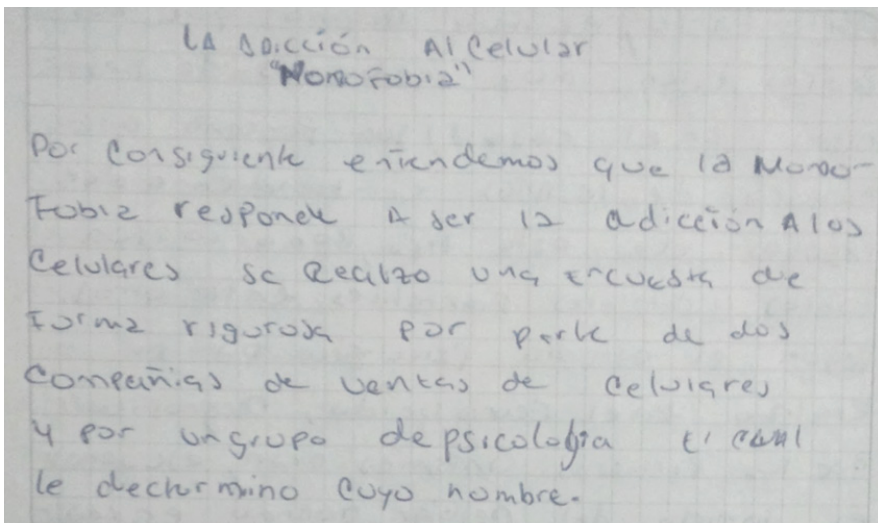 LA ADICCIÓN Al Celular
"NOMOFObia"
Por Consiguiente entendemos que la Nomo-
Fobia responde A ser la adicción A los
Celulares se Realizo una encuesta de
Forma rigurosa por parte de dos
Compañias de ventas de Celulares
y por un grupo de psicología el cual
le dectermino cuyo nombre.